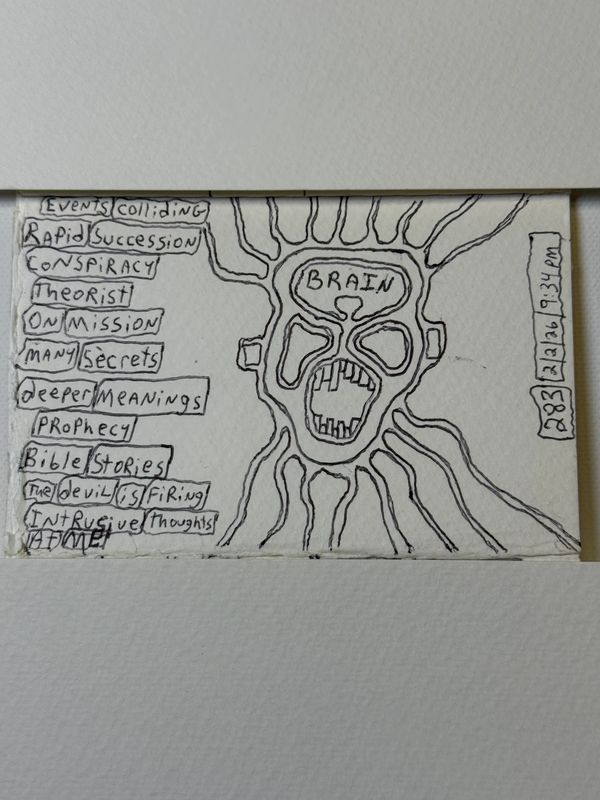 EVENTS COLLIDING
RAPID SUCCESSION
CONSPIRACY
THEORIST
ON MISSION
MANY SECRETS
DEEPER MEANINGS
PROPHECY
BIBLE STORIES
THE DEVIL IS FIRING
INTRUSIVE THOUGHTS
AT ME!
BRAIN
283 2/2/26 9:34 PM